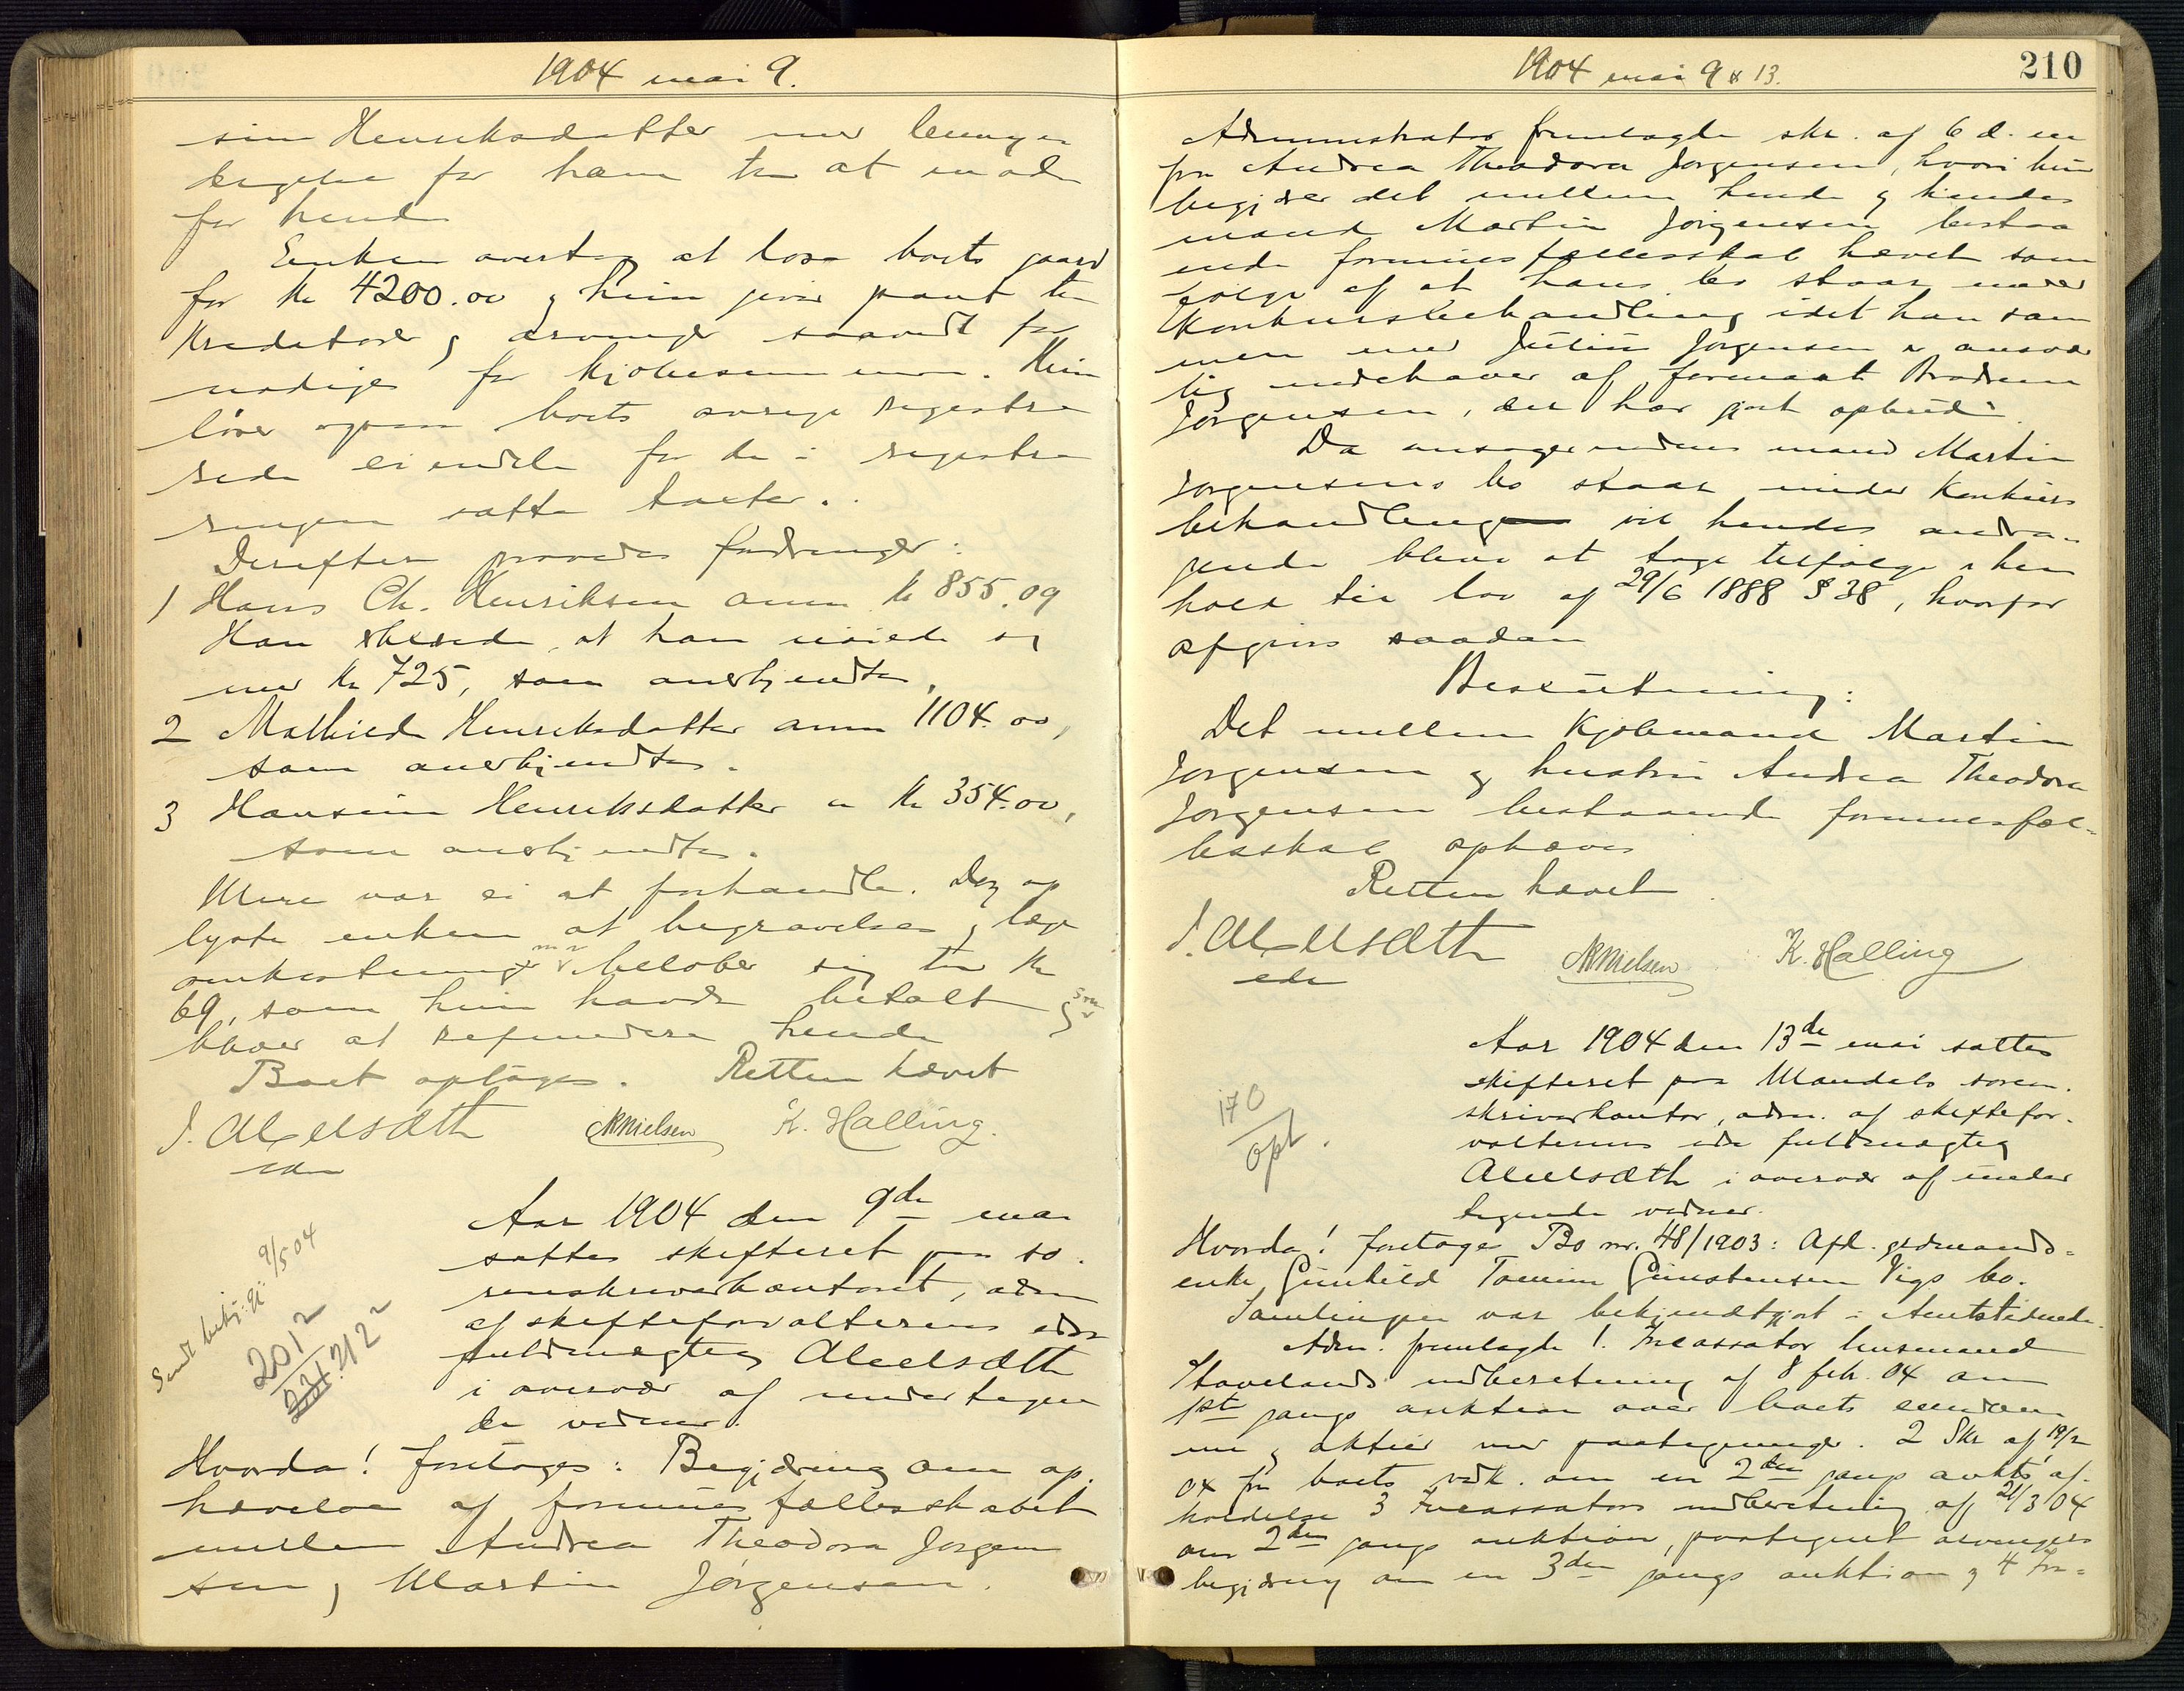 1904 mai 9.
sine Henriksdatter med
for ham til at møde
for hende
Enken overtog at løse boets gaard
for Kr 4200.00 og hun giver pant til
Kreditorer og arvinger saavidt for
nødiges for kjøbesummen. Hun
løser ogsaa boets øvrige registre
rede eiendele for de i registre
ringen satte takster.
Derefter prøvedes fordringer:
1 Hans Ch. Henriksen anm Kr 855.09
Han at han nøiede sig
med Kr 725, som anerkjendtes.
2 Mathilde Henriksdatter anm 1104.00,
som anerkjendtes.
3 Hansine Henriksdatter a Kr 354.00,
som anerkjendtes.
Mere var ei at forhandle. Dog op
lyste enken at begravelses og læge
omkostninger m v beløber sig til Kr
69, som hun havde betalt og som
bliver at refundere hende
Boet optages. Retten hævet
J. Abelsæth ANNielsen K. Halling.
edsv
Aar 1904 den 9de mai
sattes skifteret paa so
renskriverkontoret, adm
af skifteforvalterens edsv
fuldmægtig Abelsæth
i overvær af undertegne
de vidner.
Sendt bekj: gj: 9/5 04
201 2
231. 212 2
Hvorda! foretoges: Begjæring om op
hævelse af formuesfællesskabet
mellem Andrea Theodora Jørgen
sen og Martin Jørgensen.
1904 mai 9 & 13.
210
Administrator fremlagde skr. af 6 d. m
fra Andrea Theodora Jørgensen, hvori hun
begjærer det mellem hende og hendes
mand Martin Jørgensen bestaa
ende formuesfællesskab hævet som
følge af at hans bo staar under
Konkursbehandling idet han sam
men med Julius Jørgensen er ansvar
lig indehaver af firmaet Brødrene
Jørgensen, der har gjort opbud.
Da ansøgerindens mand Martin
Jørgensens bo staar under Konkurs
behandling vil hendes andra-
gende blive at tage tilfølge i hen
hold til lov af 29/6 1888 § 38, hvorfor
afgives saadan
Beslutning:
Det mellem Kjøbmand Martin
Jørgensen og hustru Andrea Theodora
Jørgensen bestaaende formuesfæl-
lesskab ophæves
Retten hævet.
J. Abelsæth ANNielsen K. Halling
edsv
170
opt.
Aar 1904 den 13de mai sattes
skifteret paa Mandals soren.
skriverkontor, adm. af skiftefor-
valterens edsv fuldmægtig
Abelsæth i overvær af under
tegnede vidner.
Hvorda! foretages Bo nr. 48/1903: Afd. gdmands-
enke Gunhild Tomine Gunstensen Vigs bo.
Samlingen var bekjendtgjort i Amtstidende.
Adm. fremlagde 1. Incassator husmand
Stavelands indberetning af 8 feb. 04 om
1ste gangs auktion over boets eiendom
me og aktier med paategninger. 2 Skr af 19/2
04 fra boets vedk. om en 2den gangs aukts af-
holdelse 3 Incassators indberetning af 21/3 04
om 2den gangs auktion, paategnet arvingers
begjæring om en 3die gangs auktion og 4 In-